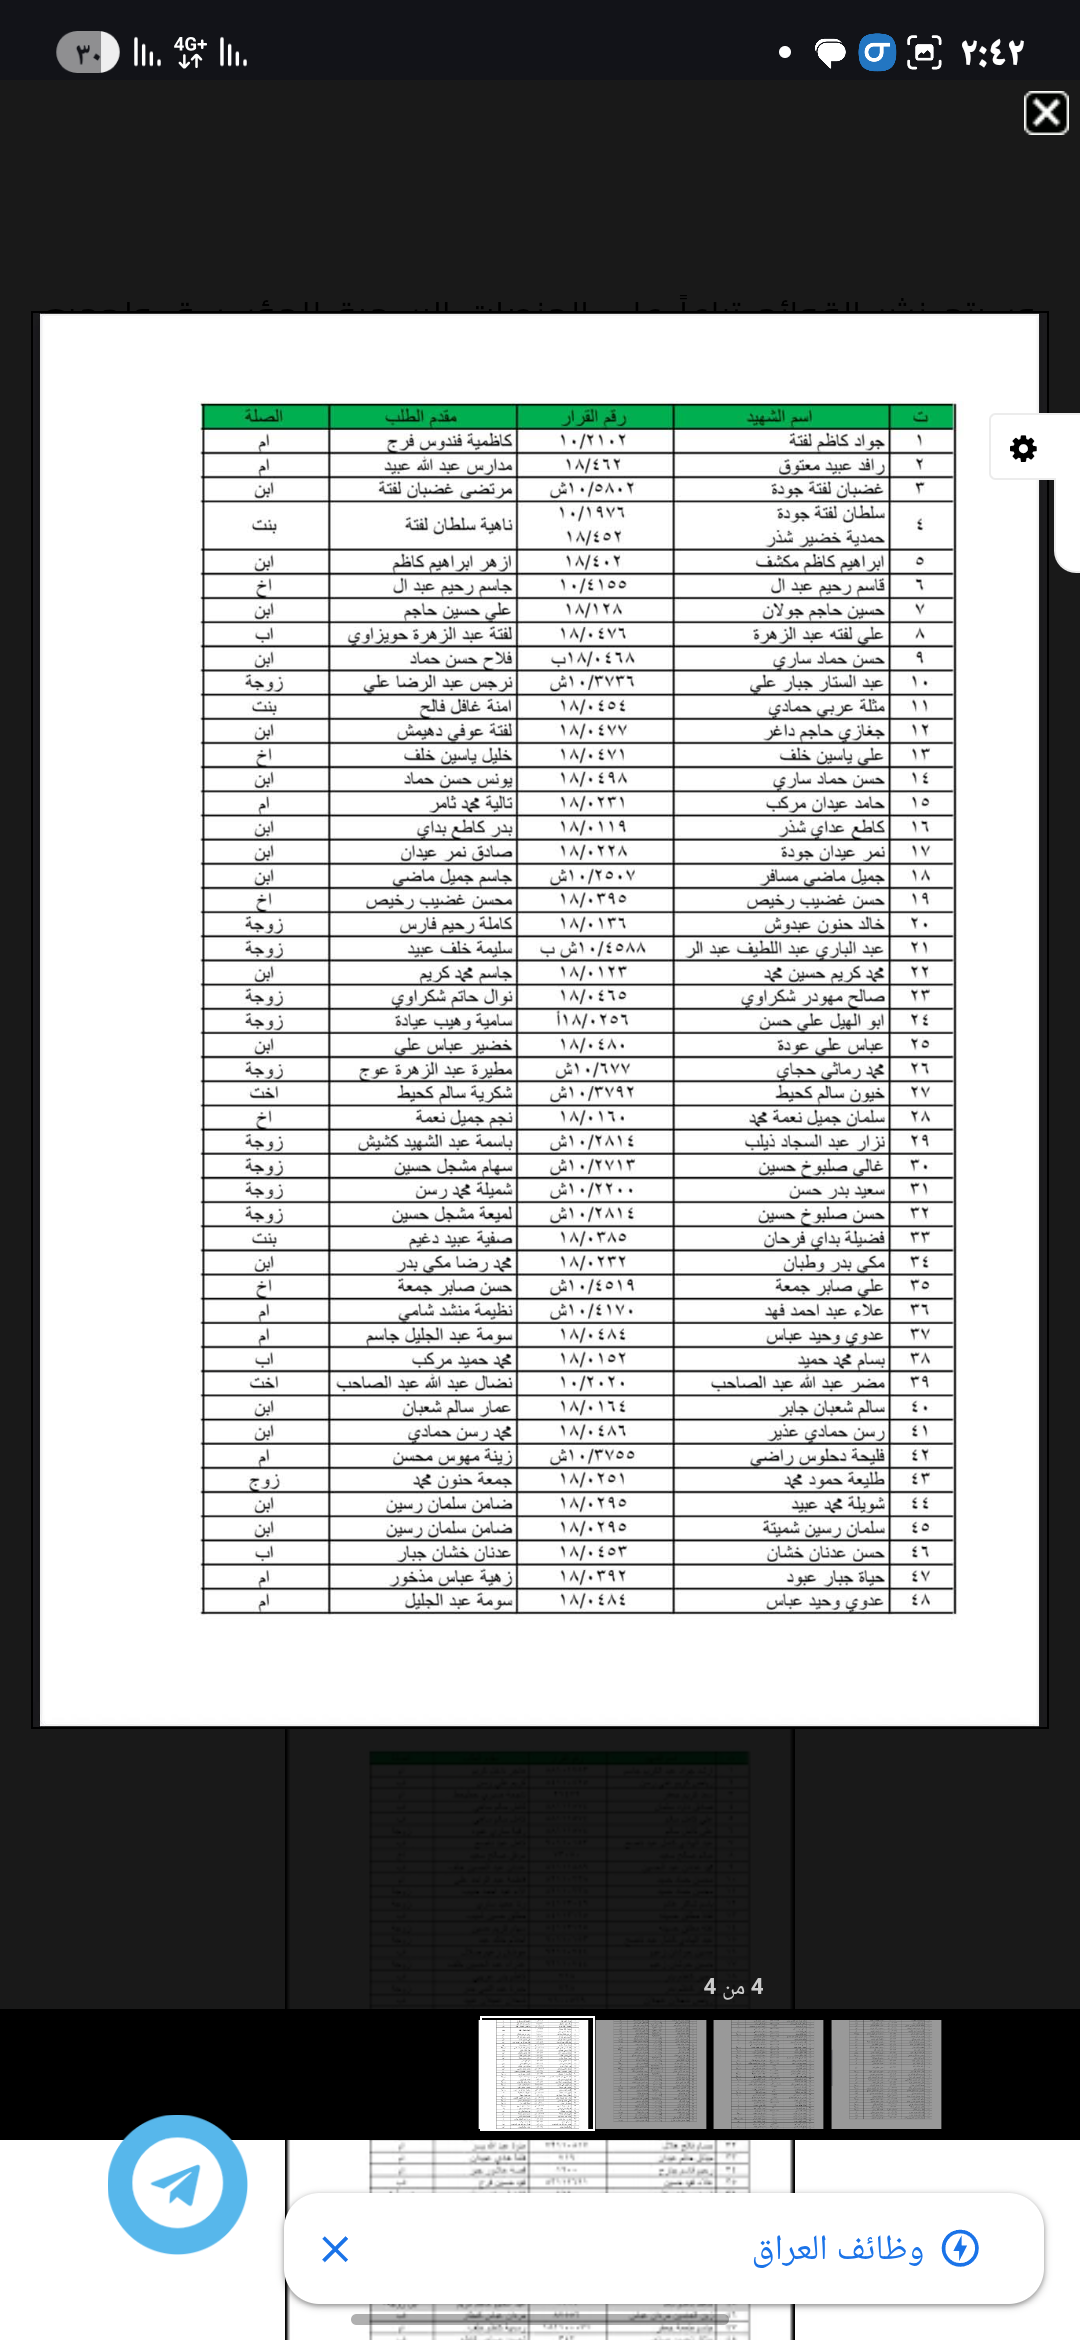 ٣٠ 4G+ ٢:٤٢
ت اسم الشهيد رقم القرار مقدم الطلب الصلة
١ جواد كاظم لفتة ١٠/٢١٠٢ كاظمية فندوس فرج ام
٢ رافد عبيد معتوق ١٨/٤٦٢ مدارس عبد الله عبيد ام
٣ غضبان لفتة جودة ١٠/٥٨٠٢ش مرتضى غضبان لفتة ابن
٤ سلطان لفتة جودة ١٠/١٩٧٦ ناهية سلطان لفتة بنت
حمدية خضير شذر ١٨/٤٥٢
٥ ابراهيم كاظم مكشف ١٨/٤٠٢ ازهر ابراهيم كاظم ابن
٦ قاسم رحيم عبد ال ١٠/٤١٥٥ جاسم رحيم عبد ال اخ
٧ حسين حاجم جولان ١٨/١٢٨ علي حسين حاجم ابن
٨ علي لفته عبد الزهرة ١٨/٠٤٧٦ لفتة عبد الزهرة حويزاوي اب
٩ حسن حماد ساري ١٨/٠٤٦٨ب فلاح حسن حماد ابن
١٠ عبد الستار جبار علي ١٠/٣٧٣٦ش نرجس عبد الرضا علي زوجة
١١ مثلة عربي حمادي ١٨/٠٤٥٤ امنة غافل فالح بنت
١٢ جغازي حاجم داغر ١٨/٠٤٧٧ لفتة عوفي دهيمش ابن
١٣ علي ياسين خلف ١٨/٠٤٧١ خليل ياسين خلف اخ
١٤ حسن حماد ساري ١٨/٠٤٩٨ يونس حسن حماد ابن
١٥ حامد عيدان مركب ١٨/٠٢٣١ تالية محمد ثامر ام
١٦ كاطع عداي شذر ١٨/٠١١٩ بدر كاطع بداي ابن
١٧ نمر عيدان جودة ١٨/٠٢٢٨ صادق نمر عيدان ابن
١٨ جميل ماضي مسافر ١٠/٢٥٠٧ش جاسم جميل ماضي ابن
١٩ حسن غضيب رخيص ١٨/٠٣٩٥ محسن غضيب رخيص اخ
٢٠ خالد حنون عبدوش ١٨/٠١٣٦ كاملة رحيم فارس زوجة
٢١ عبد الباري عبد اللطيف عبد الر ١٠/٤٥٨٨ش ب سليمة خلف عبيد زوجة
٢٢ محمد كريم حسين محمد ١٨/٠١٢٣ جاسم محمد كريم ابن
٢٣ صالح مهودر شكراوي ١٨/٠٤٦٥ نوال حاتم شكراوي زوجة
٢٤ ابو الهيل علي حسن ١٨/٠٢٥٦أ سامية وهيب عيادة زوجة
٢٥ عباس علي عودة ١٨/٠٤٨٠ خضير عباس علي ابن
٢٦ محمد رماثي حجاي ١٠/٦٧٧ش مطيرة عبد الزهرة عوج زوجة
٢٧ خيون سالم كحيط ١٠/٣٧٩٢ش شكرية سالم كحيط اخت
٢٨ سلمان جميل نعمة محمد ١٨/٠١٦٠ نجم جميل نعمة اخ
٢٩ نزار عبد السجاد ذيلب ١٠/٢٨١٤ش باسمة عبد الشهيد كشيش زوجة
٣٠ غالي صلبوخ حسين ١٠/٢٧١٣ش سهام مشجل حسين زوجة
٣١ سعيد بدر حسن ١٠/٢٢٠٠ش شميلة محمد رسن زوجة
٣٢ حسن صلبوخ حسين ١٠/٢٨١٤ش لميعة مشجل حسين زوجة
٣٣ فضيلة بداي فرحان ١٨/٠٣٨٥ صفية عبيد دغيم بنت
٣٤ مكي بدر وطبان ١٨/٠٢٣٢ محمد رضا مكي بدر ابن
٣٥ علي صابر جمعة ١٠/٤٥١٩ش حسن صابر جمعة اخ
٣٦ علاء عبد احمد فهد ١٠/٤١٧٠ش نظيمة منشد شامي ام
٣٧ عدوي وحيد عباس ١٨/٠٤٨٤ سومة عبد الجليل جاسم ام
٣٨ بسام محمد حميد ١٨/٠١٥٢ محمد حميد مركب اب
٣٩ مضر عبد الله عبد الصاحب ١٠/٢٠٢٠ نضال عبد الله عبد الصاحب اخت
٤٠ سالم شعبان جابر ١٨/٠١٦٤ عمار سالم شعبان ابن
٤١ رسن حمادي عذير ١٨/٠٤٨٦ محمد رسن حمادي ابن
٤٢ فليحة دحلوس راضي ١٠/٣٧٥٥ش زينة مهوس محسن ام
٤٣ طليعة حمود محمد ١٨/٠٢٥١ جمعة حنون محمد زوج
٤٤ شويلة محمد عبيد ١٨/٠٢٩٥ ضامن سلمان رسين ابن
٤٥ سلمان رسين شميتة ١٨/٠٢٩٥ ضامن سلمان رسين ابن
٤٦ حسن عدنان خشان ١٨/٠٤٥٣ عدنان خشان جبار اب
٤٧ حياة جبار عبود ١٨/٠٣٩٢ زهية عباس مذخور ام
٤٨ عدوي وحيد عباس ١٨/٠٤٨٤ سومة عبد الجليل ام
4 من 4
وظائف العراق